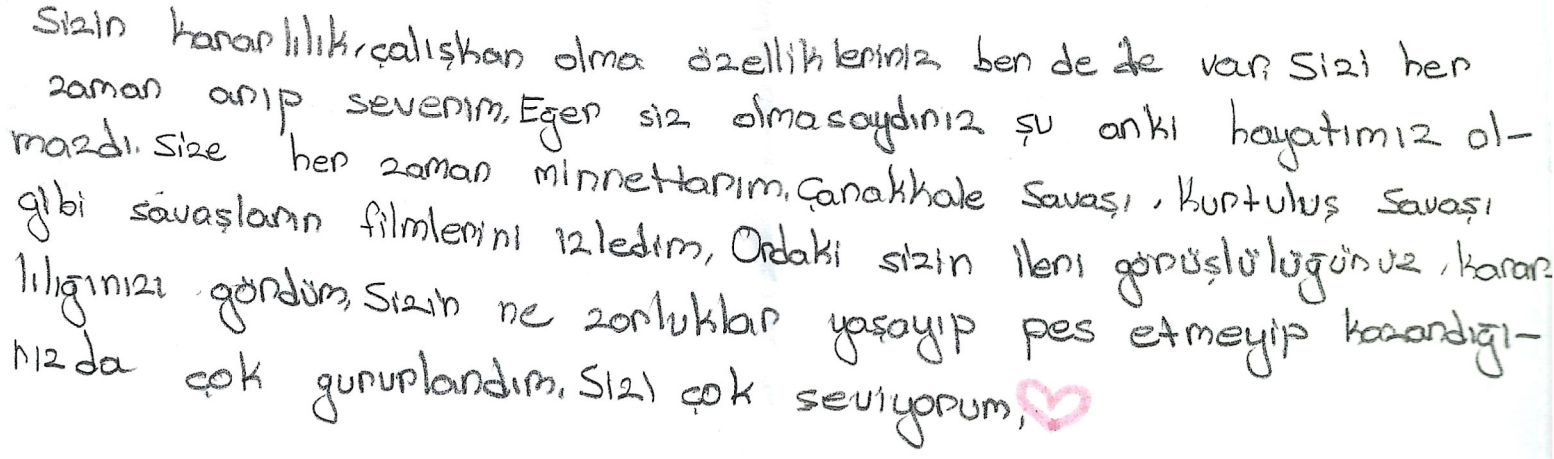 Sizin kararlılık, çalışkan olma özellikleriniz ben de de var. Sizi her
zaman anıp severim. Eğer siz olmasaydınız şu anki hayatımız ol-
mazdı. Size her zaman minnettarım. Çanakkale Savaşı, Kurtuluş Savaşı
gibi savaşların filmlerini izledim. Ordaki sizin ileri görüşlülüğünüz, karar-
lılığınızı gördüm. Sizin ne zorluklar yaşayıp pes etmeyip kazandığı-
nız da çok gururlandım. Sizi çok seviyorum.